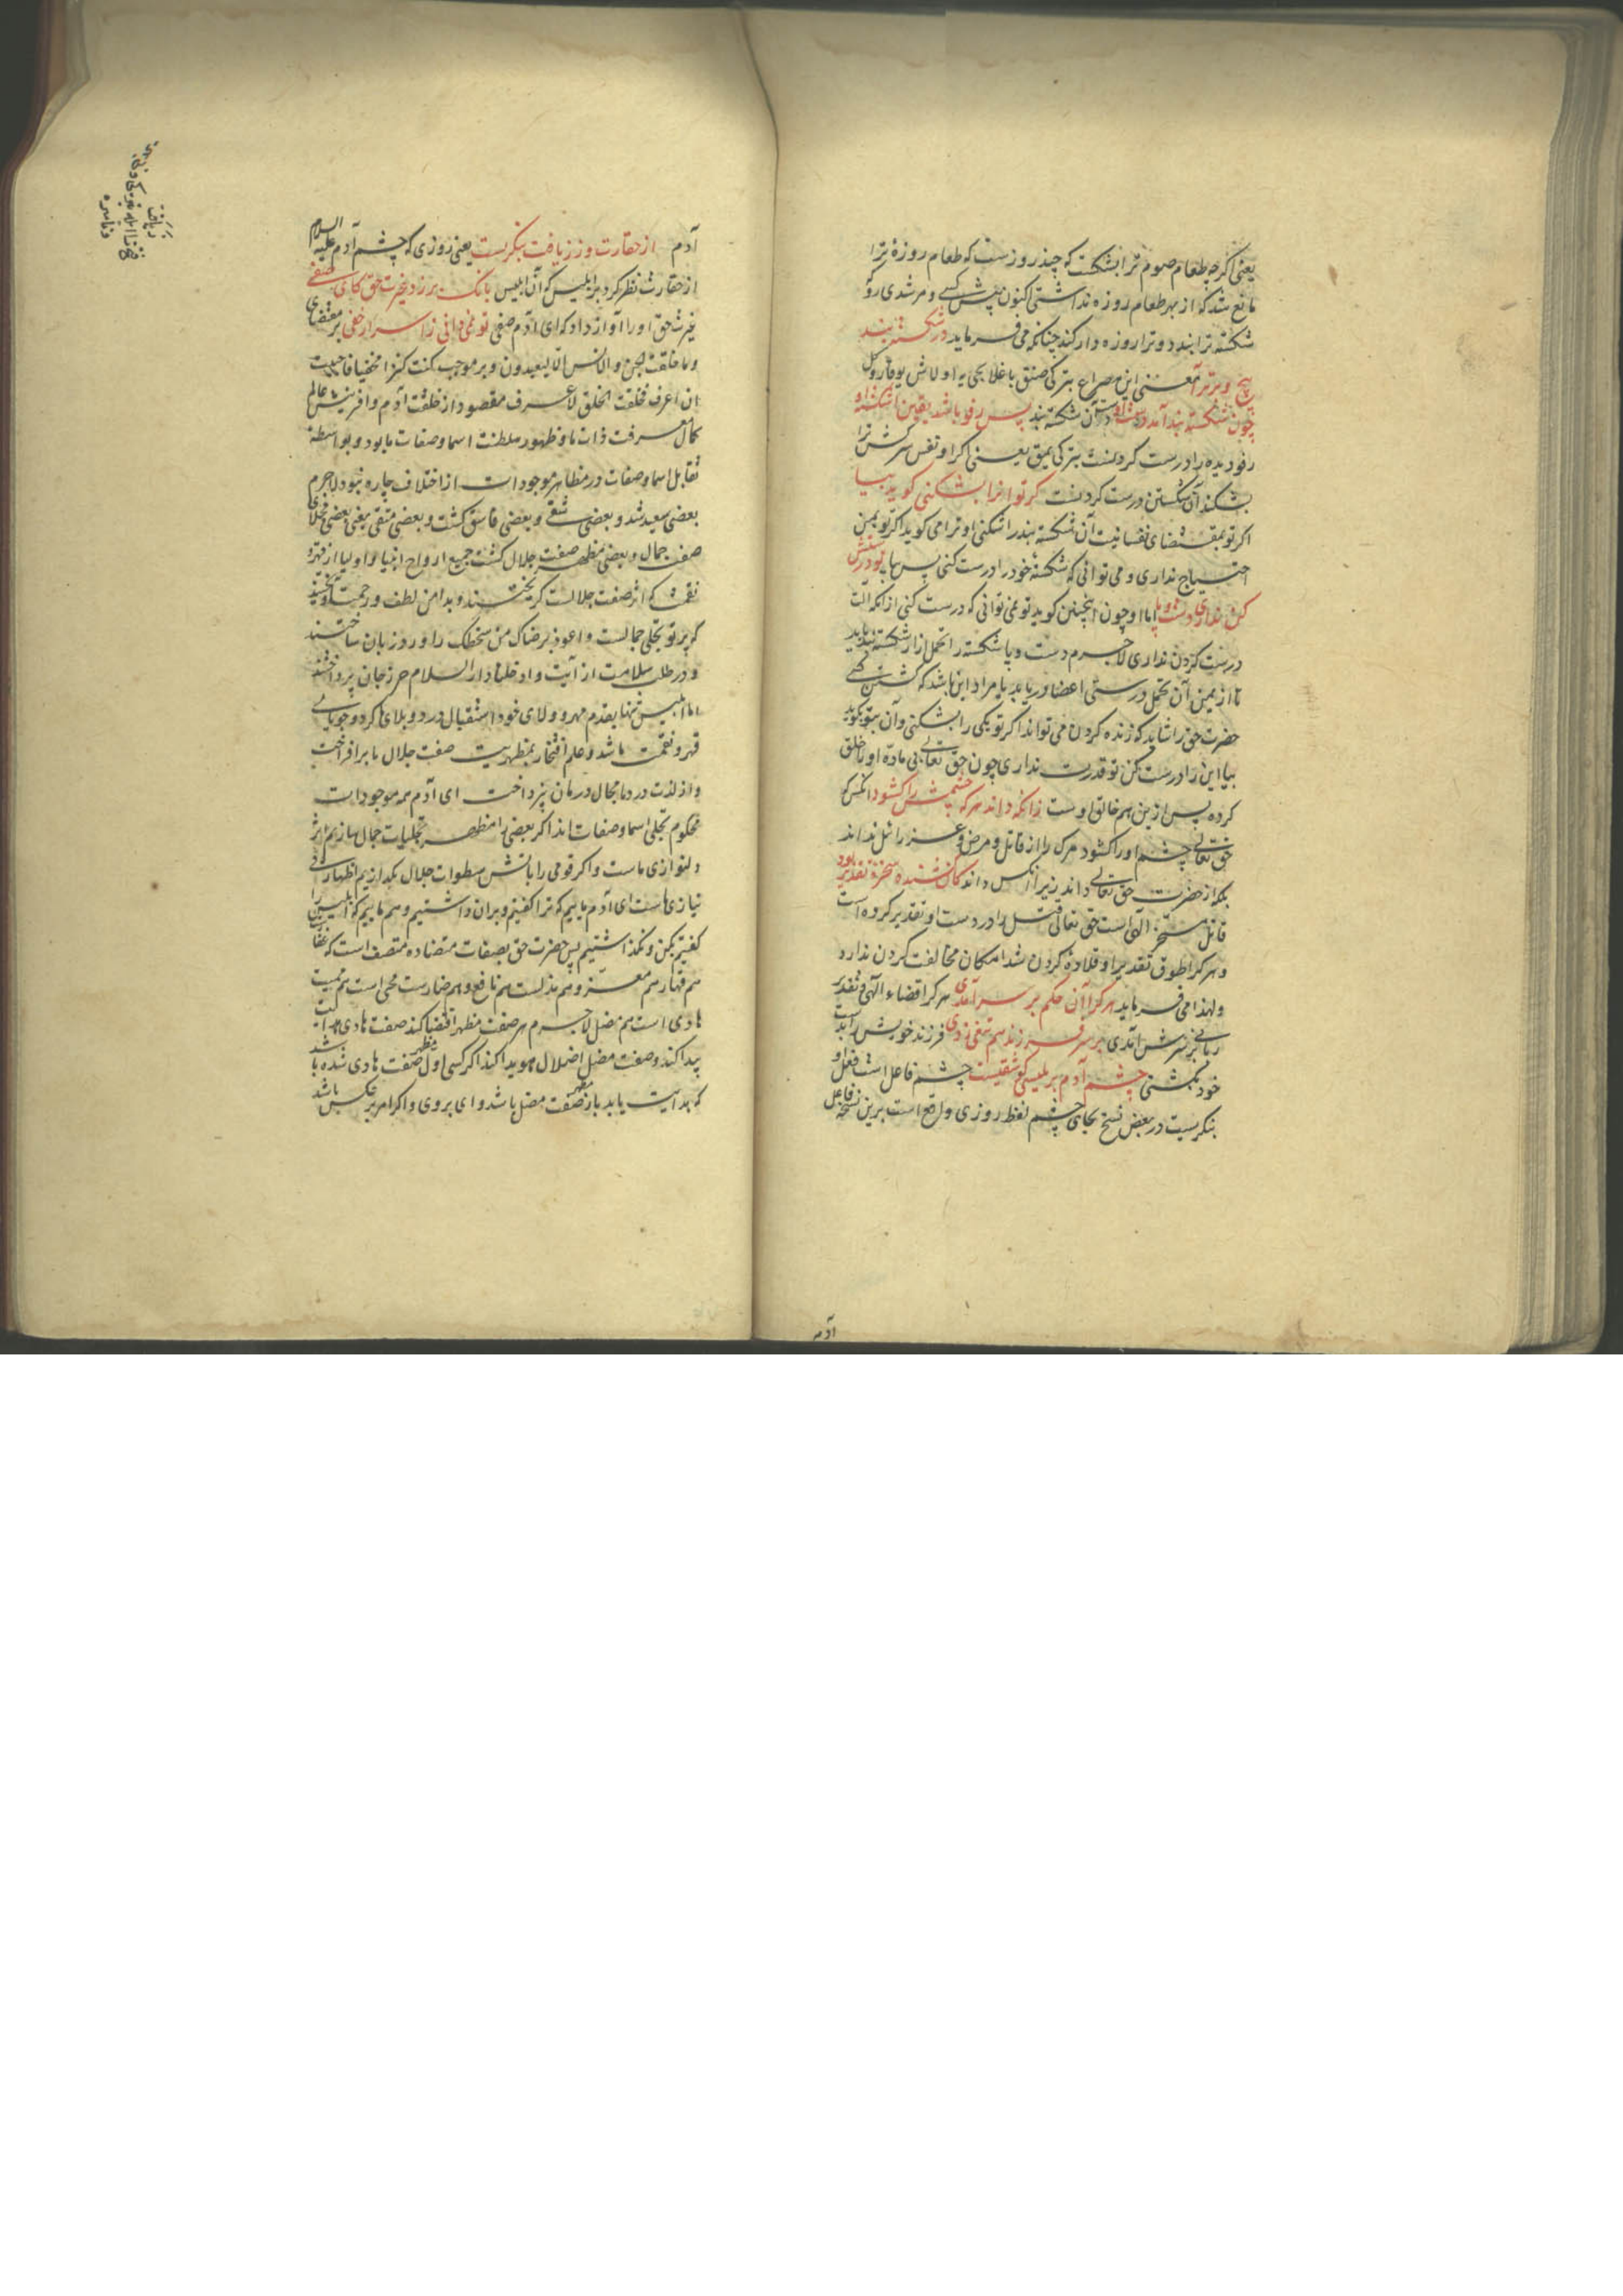 یعنی اکرچه طعام صوم ترا بشکست که چند روزست که طعام روزهٔ ترا
مانع شد که از بهر طعام روزه نداشتی اکنون پیش کسی و مرشدی رو که
شکسته ترا بندد و ترا روزه دار کند چنانکه می فرماید در شکسته بند
پیچ و برتر آ معنئ این مصراع بترکی صنق باغلایجی یه اولاش یوقارو کل
چون شکسته بند آمد دست او دست آن شکسته بند پس رفو باشد یقین اشکست او
رفو دیده را درست کرد نست بترکی یمق یعنی اکر او نفس سرکش ترا
بشکند آن شکستن درست کردنست کر تو انرا بشکنی کوید بیا
اکر تو بمقتضای نفسانیت آن شکسته بند را شکنی او ترا می کوید اکر تو بمن
احتیاج نداری و می توانی که شکسته خود را درست کنی پس بیا تو درستش
کن نداری دست و پا اما او چون اینچنین کوید تو نمی توانی که درست کنی از آنکه آلت
درست کردن نداری لاجرم دست و پا شکسته را تحمل از ار شکسته بند باید
تا از یمن آن تحمل درستی اعضا دریابد یا مراد این باشد که کشتن کسی
حضرت حق را شاید که زنده کردن می تواند اکر تو یکی را بشکنی و آن بتو بکوید
بیا این را درست کن تو قدرت نداری چون حق تعالی بی ماده او را خلق
کرده پس ازین هم خالق اوست زانکه داند هر که چشمش را کشود آنکس که
حق تعالی چشم او را کشود مرک را از قاتل و مرض و عزرائیل نداند
بلکه از حضرت حق تعالی داند زیرا آنکس داند کان کشنده سخره تقدیر بود
قاتل مسخر الهی است حق تعالی قتل را در دست او تقدیر کرده است
و هر کرا طوق تقدیر او قلاده کردن شد امکان مخالفت کردن ندارد
ولهذا می فرماید هر کرا آن حکم بر سر آمدی هر کرا قضاء الهی و تقدیر
ربانی بر سرش آمدی بر سر فرزند هم تیغی زدی فرزند خویش را بدست
خود بکشتی چشم آدم بر بلیسی کو شقیست چشم فاعل است فعل او
بنکریست در بعض نسخ بجای چشم لفظ روزی واقع است برین نسخه فاعل
آدم
آدم از حقارت وز زیافت بنکریست یعنی روزی که چشم آدم علیه السلام
از حقارت نظر کرد بر ابلیس که آن ابلیس بانک برزد غیرت حق کای صفی
غیرت حق او را آواز داد که ای آدم صفی تو نمی دانی ز اسرار خفی بر مقتضای
وما خلقت الجن والانس الا لیعبدون و بر موجب کنت کنزا مخفیا فاحببت
ان اعرف فخلقت الخلق لاعرف مقصود از خلقت آدم و آفرینش عالم
کمال معرفت ذات ما و ظهور سلطنت اسما و صفات ما بود و بواسطهٔ
تقابل اسما و صفات در مظاهر موجودات از اختلاف چاره نبود لاجرم
بعضی سعید شد و بعضی شقی و بعضی فاسق کشت و بعضی متقی یعنی بعضی مجلای
صفت جمال و بعضی مظهر صفت جلال کشت جمیع ارواح انبیا و اولیا از قهر و
نقمت که اثر صفت جلالست کریختند و بدامن لطف و رحمت آویختند
که پرتو تجلی جمالست و اعوذ برضاک من سخطک را ورد زبان ساختند
و در طلب سلامت از آیت و ادخلنا دار السلام حرز جان پرداختند
اما ابلیس تنها بقدم مهر و ولای خود استقبال درد و بلای ما کرد و جویای
قهر و نقمت ما شد و علم افتخار بمظهریت صفت جلال ما برافراخت
و از لذت درد ما بمجال درمان نپرداخت ای آدم همه موجودات
محکوم تجلی اسما و صفات اند اکر بعضی را مظهر تجلیات جمال سازیم اثر
دلنوازی ماست و اکر قومی را بآتش سطوات جلال بکدازیم اظهار بی
نیازی ماست ای آدم ماییم که ترا کفتیم و بر آن داشتیم و هم ماییم که ابلیس را
کفتیم بکن و نکذاشتیم پس حضرت حق بصفات متضاده متصف است که هم غفارست
هم قهار هم معز و هم مذلست هم نافع و هم ضارست محیی است هم ممیت
هادی است هم مضل لاجرم هر صفت مظهر اقتضا کند صفت هادی هدایت
پیدا کند و صفت مضل اضلال هویدا کند اکر کسی اول مظهر صفت هادی شده باشد
که هدایت یابد باز مظهر صفت مضل باشد وای بر وی و اکر امر بر عکس باشد